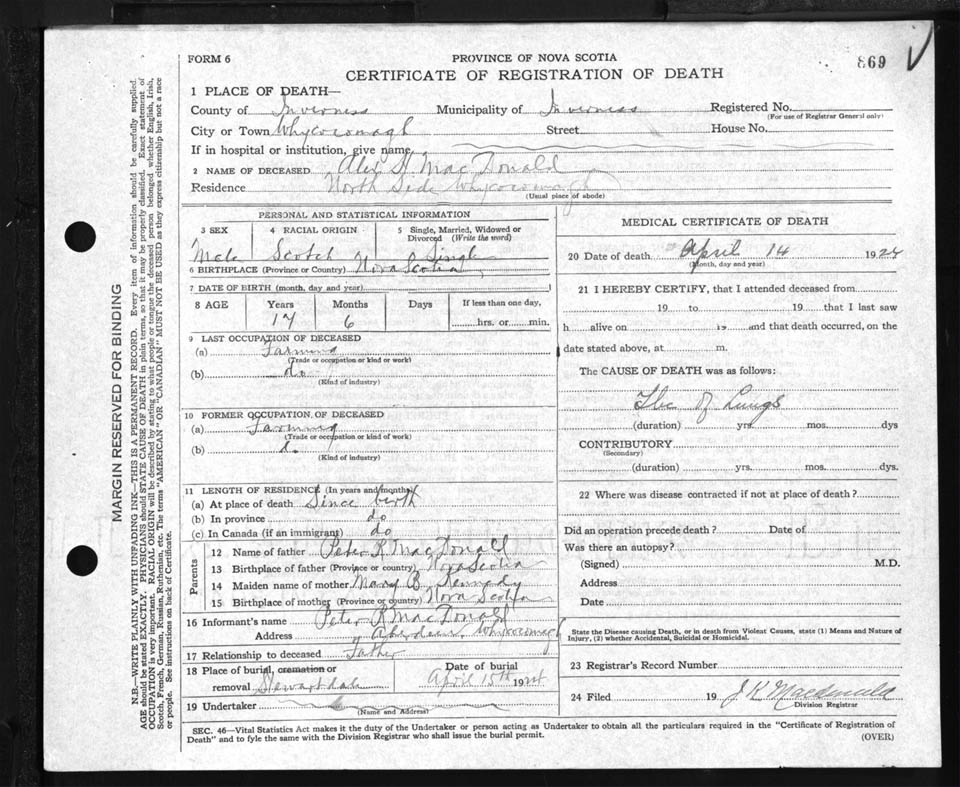 FORM 6
PROVINCE OF NOVA SCOTIA
869
CERTIFICATE OF REGISTRATION OF DEATH
1 PLACE OF DEATH—
County of Inverness Municipality of Inverness Registered No.
(For use of Registrar General only)
City or Town Whycocomagh Street House No.
If in hospital or institution, give name
2 NAME OF DECEASED Alex MacDonald
Residence North Side Whycocomagh
(Usual place of abode)
PERSONAL AND STATISTICAL INFORMATION
3 SEX 4 RACIAL ORIGIN 5 Single, Married, Widowed or
Divorced (Write the word)
Male Scotch Single
6 BIRTHPLACE (Province or Country) Nova Scotia
7 DATE OF BIRTH (month, day and year)
8 AGE Years Months Days If less than one day,
17 6 hrs. or min.
9 LAST OCCUPATION OF DECEASED
(a) Farming
(Trade or occupation or kind or work)
(b) do
(Kind of industry)
10 FORMER OCCUPATION OF DECEASED
(a) Farming
(Trade or occupation or kind of work)
(b) d.
(Kind of industry)
11 LENGTH OF RESIDENCE (In years and months)
(a) At place of death Since birth
(b) In province do
(c) In Canada (if an immigrant) do
Parents
12 Name of father Peter R MacDonald
13 Birthplace of father (Province or country) Nova Scotia
14 Maiden name of mother Mary B. Kennedy
15 Birthplace of mother (Province or country) Nova Scotia
16 Informant's name Peter R MacDonald
Address Aberdeen Whycocomagh
17 Relationship to deceased Father
18 Place of burial, cremation or Date of burial
removal Stewartdale April 15th 1924
19 Undertaker
(Name and Address)
MEDICAL CERTIFICATE OF DEATH
20 Date of death April 14 1924
(Month, day and year)
21 I HEREBY CERTIFY, that I attended deceased from
19 to 19 that I last saw
h alive on 19 and that death occurred, on the
date stated above, at m.
The CAUSE OF DEATH was as follows:
Tbc of Lungs
(duration) yrs. mos. dys
CONTRIBUTORY
(Secondary)
(duration) yrs. mos. dys.
22 Where was disease contracted if not at place of death?
Did an operation precede death? Date of
Was there an autopsy?
(Signed) M.D.
Address
Date
State the Disease causing Death, or in death from Violent Causes, state (1) Means and Nature of
Injury, (2) whether Accidental, Suicidal or Homicidal.
23 Registrar's Record Number
24 Filed 19 J K Macdonald
Division Registrar
SEC. 46—Vital Statistics Act makes it the duty of the Undertaker or person acting as Undertaker to obtain all the particulars required in the "Certificate of Registration of
Death" and to fyle the same with the Division Registrar who shall issue the burial permit.
(OVER)
MARGIN RESERVED FOR BINDING
N.B.—WRITE PLAINLY WITH UNFADING INK—THIS IS A PERMANENT RECORD. Every item of information should be carefully supplied.
AGE should be stated EXACTLY. PHYSICIANS should STATE CAUSE OF DEATH in plain terms, so that it may be properly classified. Exact statement of
OCCUPATION is very important. RACIAL ORIGIN will be described by stating to what people or tongue the deceased person belonged whether English, Irish,
Scotch, French, German, Russian, Ruthenian, etc. The terms "AMERICAN" OR "CANADIAN" MUST NOT BE USED as they express citizenship but not a race
or people. See instructions on back of Certificate.